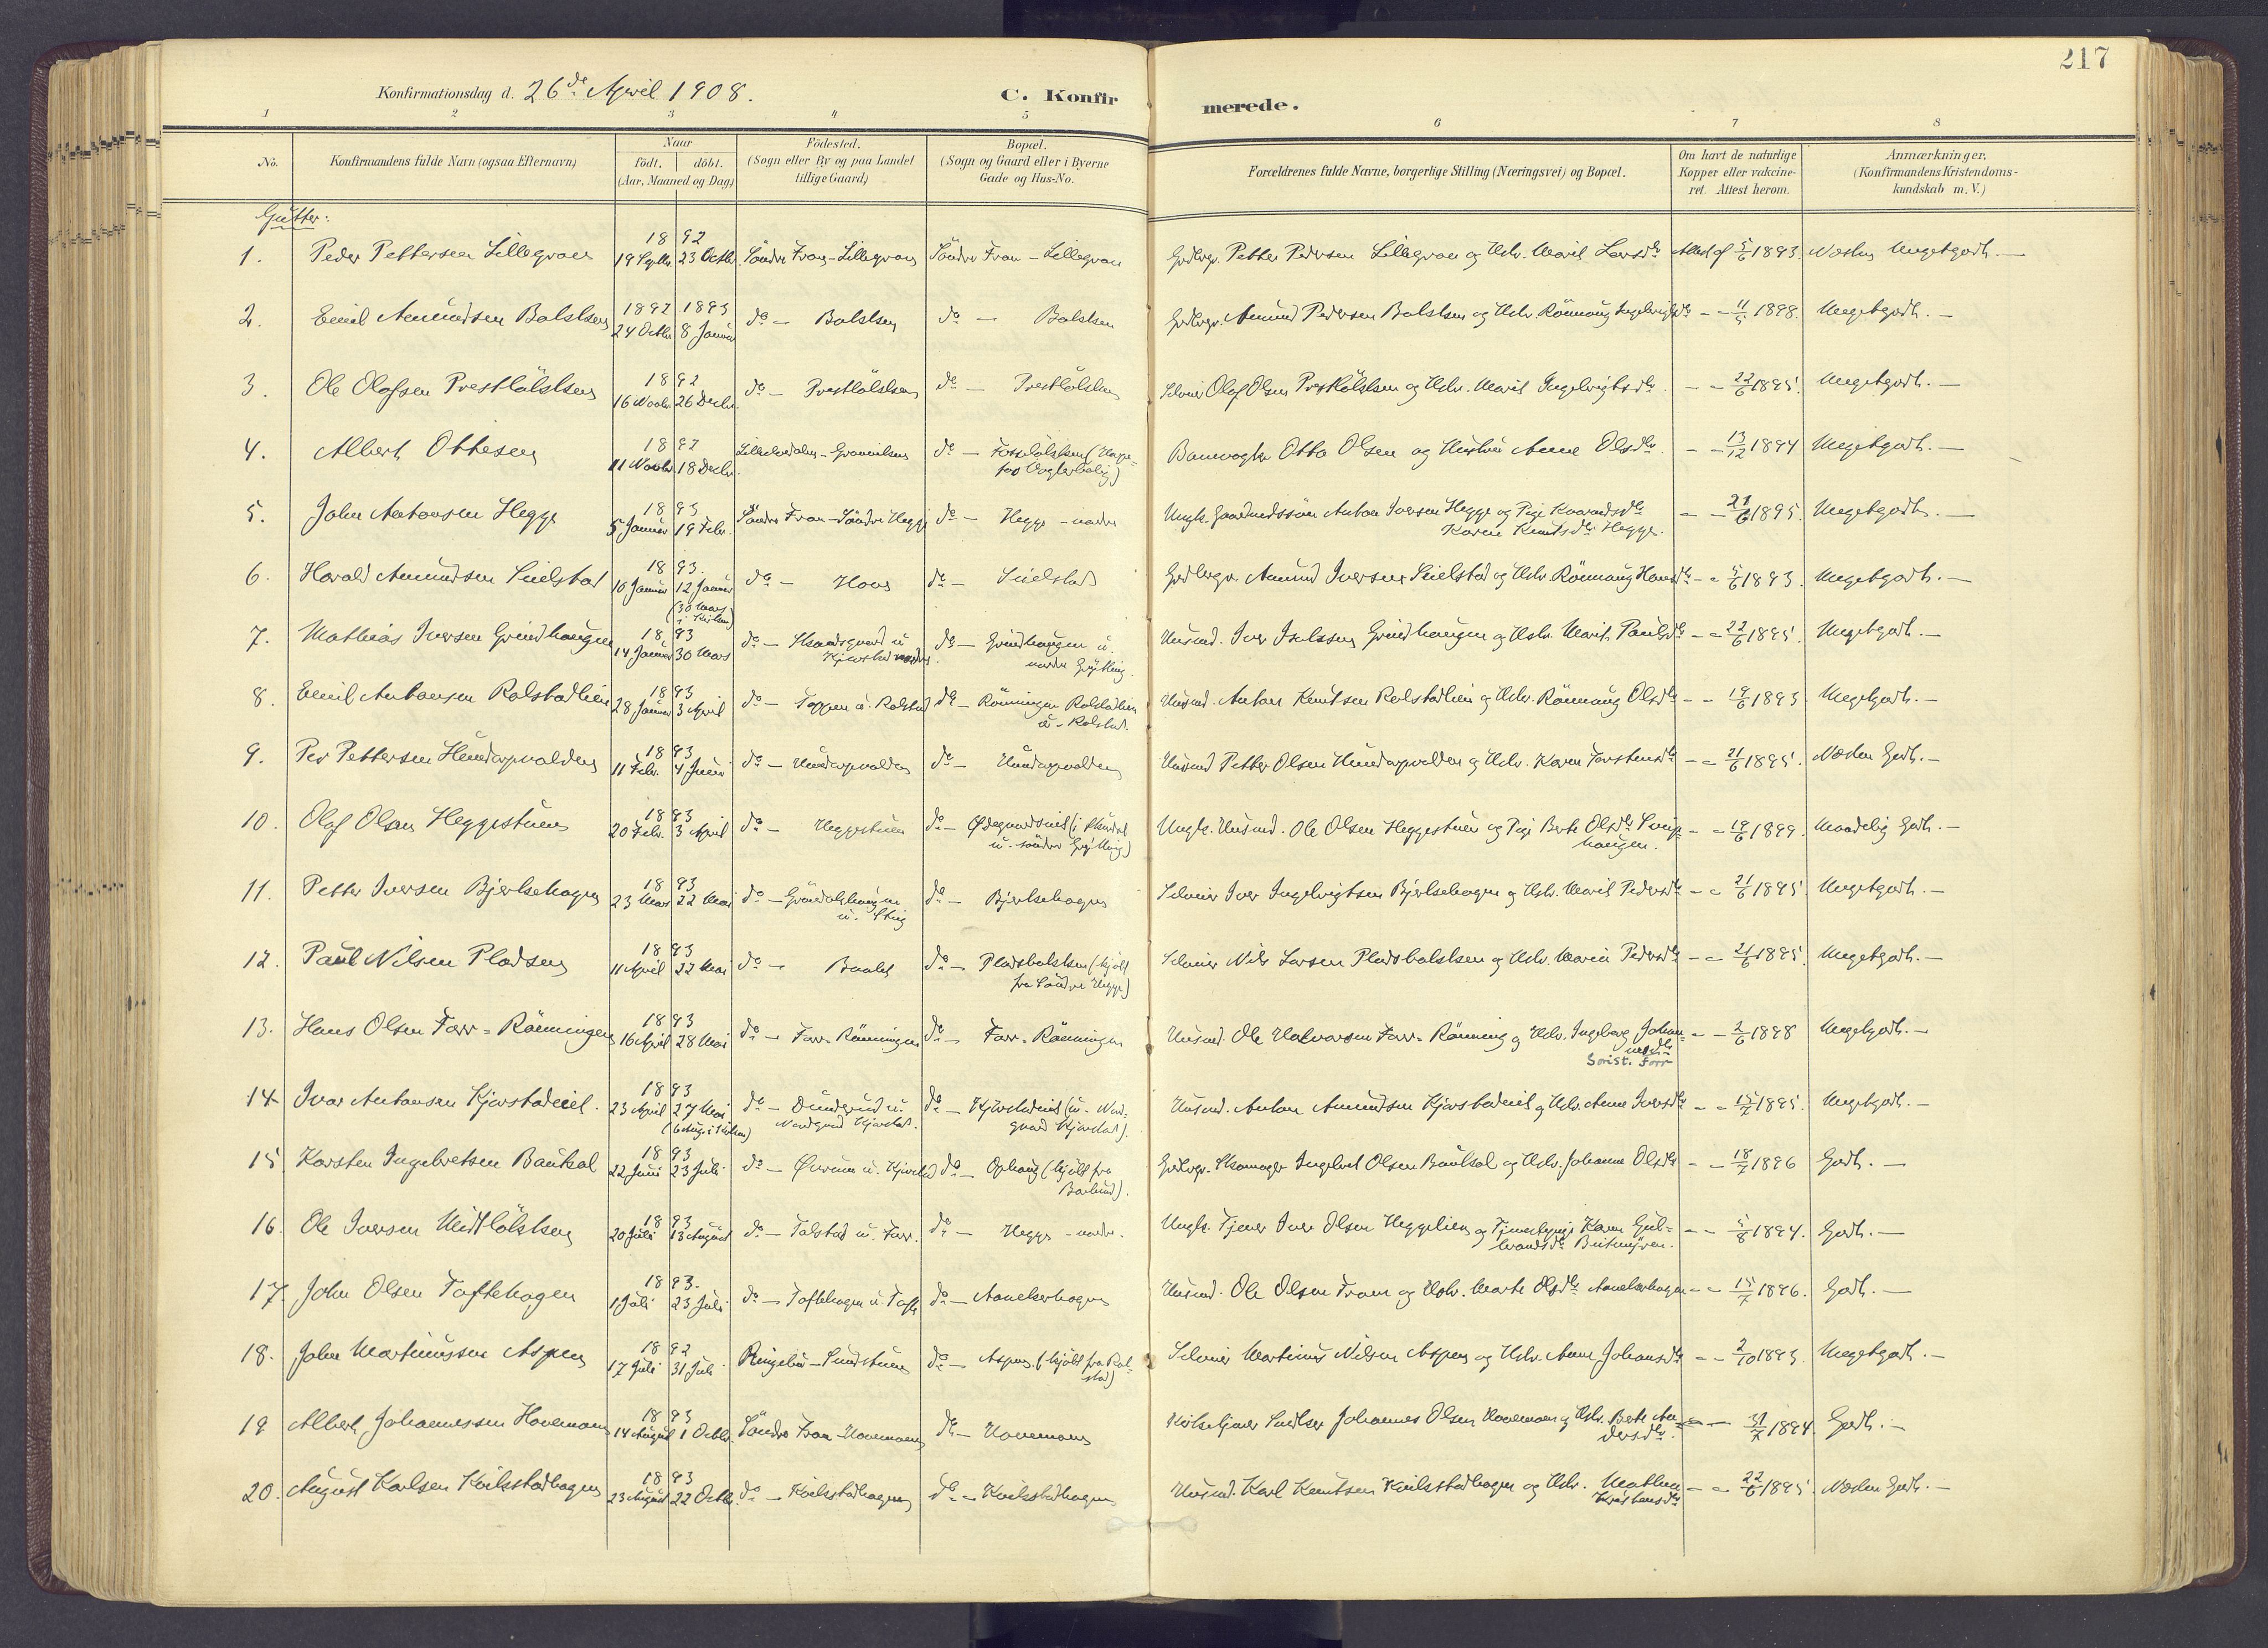 217
Konfirmationsdag d. 26de April 1908.
C. Konfirmerede.
1 2 3 4 5 6 7 8
No. Konfirmandens fulde Navn (ogsaa Efternavn) Naar født. døbt. (Aar, Maaned og Dag) Fødested. (Sogn eller By og paa Landet tillige Gaard) Bopæl. (Sogn og Gaard eller i Byerne Gade og Hus-No. Forældrenes fulde Navne, borgerlige Stilling (Næringsvei) og Bopæl. Om havt de naturlige Kopper eller vakcineret. Attest herom. Anmærkninger. (Konfirmandens Kristendomskundskab m. V.)
Gutter:
1. Peder Pettersen Lillegraven 1892 19 Septbr. 23 Octbr. Söndre Fron - Lillegraven Söndre Fron - Lillegraven Grdbrgr. Petter Pedersen Lillegraven og Hstr. Marit Larsdtr Attest af 5/6 1893. Næsten Megetgodt. —
2. Emil Amundsen Bakken 1892 24 Octbr 1893 8 Januar do — do — Grdbrgr. Amund Pedersen og Hstr. Rönnaug Ingebrigtsdtr - - 11/5 1898. Megetgodt. —
3. Ole Olafsen Prestlökken 1892 16 Novbr. 26 Decbr. do — Prestlökken do — Prestlökken Selveier Olaf Olsen Prestlökken og Hstr. Marit Ingebrigtsdtr - - 22/6 1895. Megetgodt. —
4. Albert Ottesen 1892 11 Novbr 18 Decbr. do — Banevogter Otto Olsen og Hustru Anne Olsdtr - - 13/12 1894 Megetgodt. —
5. John Antonsen Hegge 1893 5 Januar 19 Febr. Söndre Fron - Söndre Hegge do — Hegge - nordre Ungk. Gaardmandssön Anton Iversen Hegge og Pige Karen Knutsdtr Hegge. - - 21/6 1895. Megetgodt. —
6. Harald Amundsen Suelstad 1893. 10 Januar 12 Januar (30 Mars i Kirken) do — Hove do — Suelstad Grdbrgr. Amund Iversen Suelstad og Hstr. Rönnaug Hansdtr - - 5/6 1893. Megetgodt. —
7. Mathias Iversen Grindhaugen 1893 14 Januar 30 Mars do — do — Grindhaugen u. nordre Husmd. Iver Grindhaugen og Hstr. Marit Paulsdtr - - 22/6 1895. Megetgodt. —
8. Emil Antonsen Rolstadlien 1893 28 Januar 3 April do — Toppen u. Rolstad do — Rönningen Rolstadlien u. Rolstad. Husmd. Anton Knutsen Rolstadlien og Hstr. Rönnaug Olsdtr - - 19/6 1893. Megetgodt. —
9. Per Pettersen Hundorpvolden 1893 11 Febr. 4 Juni do — Hundorpvolden do — Hundorpvolden Husmd Petter Olsen Hundorpvolden og Hstr. Karen Torstensdtr - - 21/6 1895. Næsten Godt. —
10. Olaf Olsen Heggestuen 1893 20 Febr. 3 April do — Heggestuen do — Ungk. Husmd. Ole Olsen Heggestuen og Pige Berte Olsdtr - - 19/6 1899. Maadelig Godt. —
11. Petter Iversen Bjerkehagen 1893 23 Mars 22 Mai do — u. Steig do — Bjerkehagen Selveier Iver Ingebrigtsen Bjerkehagen og Hstr. Marit Pedersdtr - - 21/6 1895 Megetgodt. —
12. Paul Nilsen Pladsen 1893 11 April 22 Mai do — do — Pladsbakken (kjöbt fra Söndre Hegge) Selveier Nils Larsen Pladsbakken og Hstr. Maria Pedersdtr - - 21/6 1895. Megetgodt. —
13. Hans Olsen Forr-Rönningen 1893 16 April 28 Mai do — Forr-Rönningen do — Forr-Rönningen Husmd. Ole Halvorsen Forr-Rönning og Hstr. Ingeborg Johannesdtr - - 2/6 1898 Megetgodt. —
14. Ivar Antonsen Kjorstadeiet. 1893 23 April 27 Mai (6 Aug. i Kirken) do — u. Nordgard Kjorstad. do — Kjorstadeiet (u. Nordgaard Kjorstad). Husmd. Anton Amundsen Kjorstadeiet og Hstr. Anne Iversdtr - - 15/7 1895. Megetgodt. —
15 Karsten Ingebretsen 1893 22 Juni 23 Juli do — u. Kjorstad do — Ophaug (kjöbt fra Grdbrgr. Skomager Ingebret Olsen og Hstr. Johanne Olsdtr - - 18/7 1896 Godt. —
16. Ole Iversen Midtlökken 1893 20 Juli 13 August do — u. Forr. do — Hegge - nordre. Ungk. Tjener Iver Olsen Heggelien og Tjenestepige Karen Gulbrandsdtr - - 5/8 1894. Godt. —
17. John Olsen Toftehagen 1893. 1 Juli 23 Juli do — Toftehagen u. Tofte do — Husmd. Ole Olsen og Hstr. Marte Olsdtr - - 15/7 1896. Godt. —
18. John Martinussen Aspen 1892 17 Juli 31 Juli Ringebu - Sundstuen do — Aspen (kjöbt fra Rolstad) Selveier Martinus Nilsen Aspen og Hstr. Anne Johansdtr - - 2/10 1893. Megetgodt. —
19 Albert Johannessen Hovemoen 1893 14 August 1 Octbr. Söndre Fron - Hovemoen do — Hovemoen Kirketjener Snedker Johannes Olsen Hovemoen og Hstr. Berte Andersdtr. - - 31/7 1894. Godt. —
20. August Karlsen Kvilstadhagen 1893 23 August 22 Octbr. do — Kvilstadhagen do — Kvilstadhagen Husmd. Karl Knutsen Kvilstadhagen og Hstr. Mathea Kristensdtr - - 22/6 1895. Næsten Godt. —